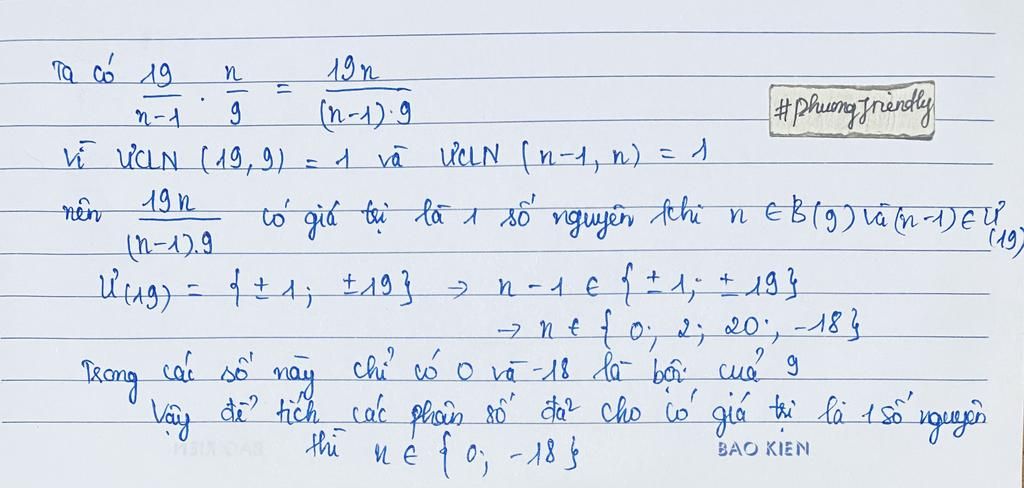 Ta có 19/n-1 . n/9 = 19n/(n-1).9
#phuongfriendly
Vì ƯCLN (19,9) = 1 và ƯCLN (n-1, n) = 1
nên 19n/(n-1).9 có giá trị là 1 số nguyên khi n ∈ B(9) và (n-1) ∈ Ư(19)
Ư(19) = {±1; ±19} → n-1 ∈ {±1; ±19}
→ n ∈ {0; 2; 20; -18}
Trong các số này chỉ có 0 và -18 là bội của 9
Vậy để tích các phân số đã cho có giá trị là 1 số nguyên
thì n ∈ {0; -18}
BAO KIEN